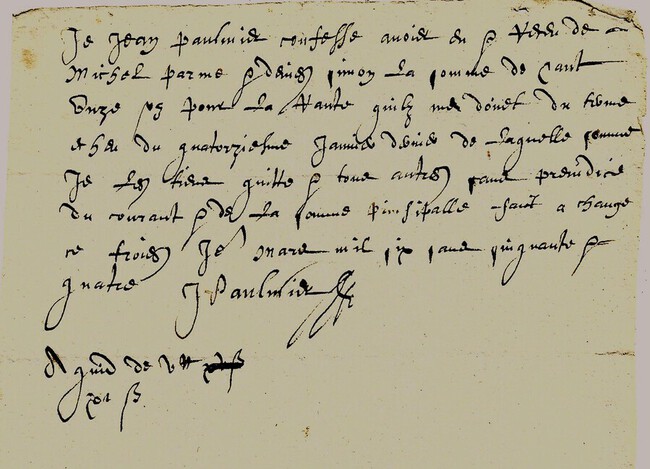 Je Jean Paulmier confesse avoier eu & Receu de
Michel parme & denis simon La somme de Cant
Unze ss pour La Rante quilz me doivet du terme
echeu du quatorziesme Janvier dernier de Laquelle somme
Je Les tiens quitte & tous autres sans preiudice
du courant & de La somme prinsipalle faict a change
ce troies Je mars mil six sans sinquante &
quatre J Paulmier
A
de